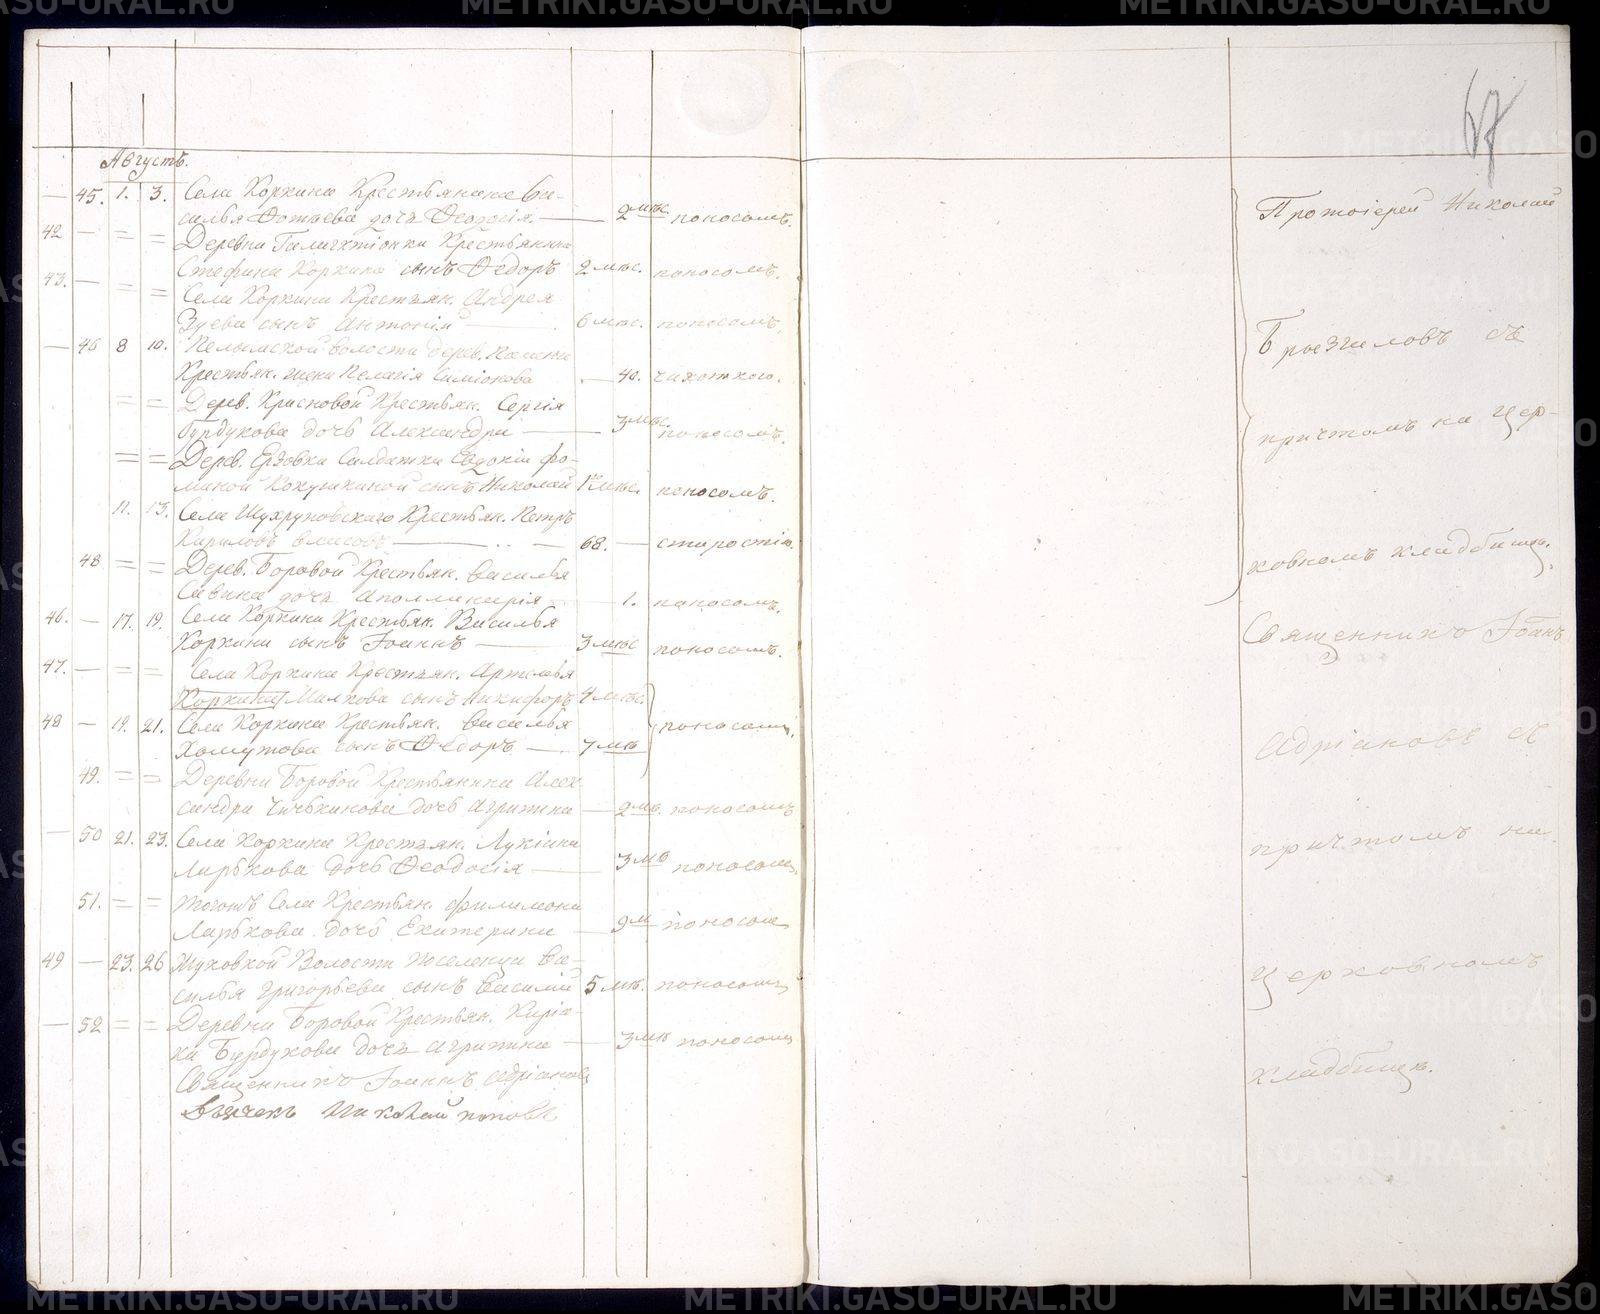 67
Августъ.
— 45. 1. 3. Села Коркина Крестьянина Ва-
силья Фотѣева дочь Ѳеодосія — 2 мѣс. поносомъ.
42 — = = Деревни Крестьянина
Стефана Коркина сынъ Ѳедоръ 2 мѣс. поносомъ.
43. — = = Села Коркина Крестьян. Андрея
Зуева сынъ Антоній — 6 мѣс. поносомъ.
— 46 8 10. волости дерев.
Крестьян. жена Пелагія Симіонова — 40. чахоткою.
= = Дерев. Красновой Крестьян. Сергія
Бурдукова дочь Александра — 3 мѣс. поносомъ.
= = Дерев. Ерзовки Солдатки Евдокіи Фо-
миной сынъ Николай 1 мѣс. поносомъ.
11. 13. Села Шухруповскаго Крестьян. Петръ
Кириловъ Власовъ — 68. — старостію.
48 = = Дерев. Боровой Крестьян. Василья
Савина дочь Аполлинарія — 1. поносомъ.
46. — 17. 19. Села Коркина Крестьян. Василья
Коркина сынъ Іоаннъ — 3 мѣс поносомъ.
47. — = = Села Коркина Крестьян. Артемья
Коркина Малкова сынъ Никифоръ 4 мѣс.
48 — 19. 21. Села Коркина Крестьян. Василья поносомъ.
Хомутова сынъ Ѳедоръ — 7 мѣ
49. = = Деревни Боровой Крестьянина Алек-
сандра дочь Агрипина — 2 мѣ. поносомъ
— 50 21. 23. Села Коркина Крестьян. Лукіана
Ларькова дочь Ѳеодосія — 3 мѣ поносомъ
51. = = тогожъ Села Крестьян. Филимона
Ларькова дочь Екатерина — 9 м поносом
49 — 23. 26 Жуковской Волости поселенца Ва-
силья Григорьева сынъ Василій 5 мѣ. поносомъ
— 52 = = Деревни Боровой Крестьян. Киріа-
ка Бурдукова дочь Агрипина — 3 мѣ поносомъ
Священникъ Іоаннъ Адріановъ
Николай Поповъ
Протоіерей Николай
Броезгиловъ съ
причтомъ на цер-
ковномъ кладбищѣ.
Священникъ Іоаннъ
Адріановъ съ
причтомъ на
церковномъ
кладбищѣ.